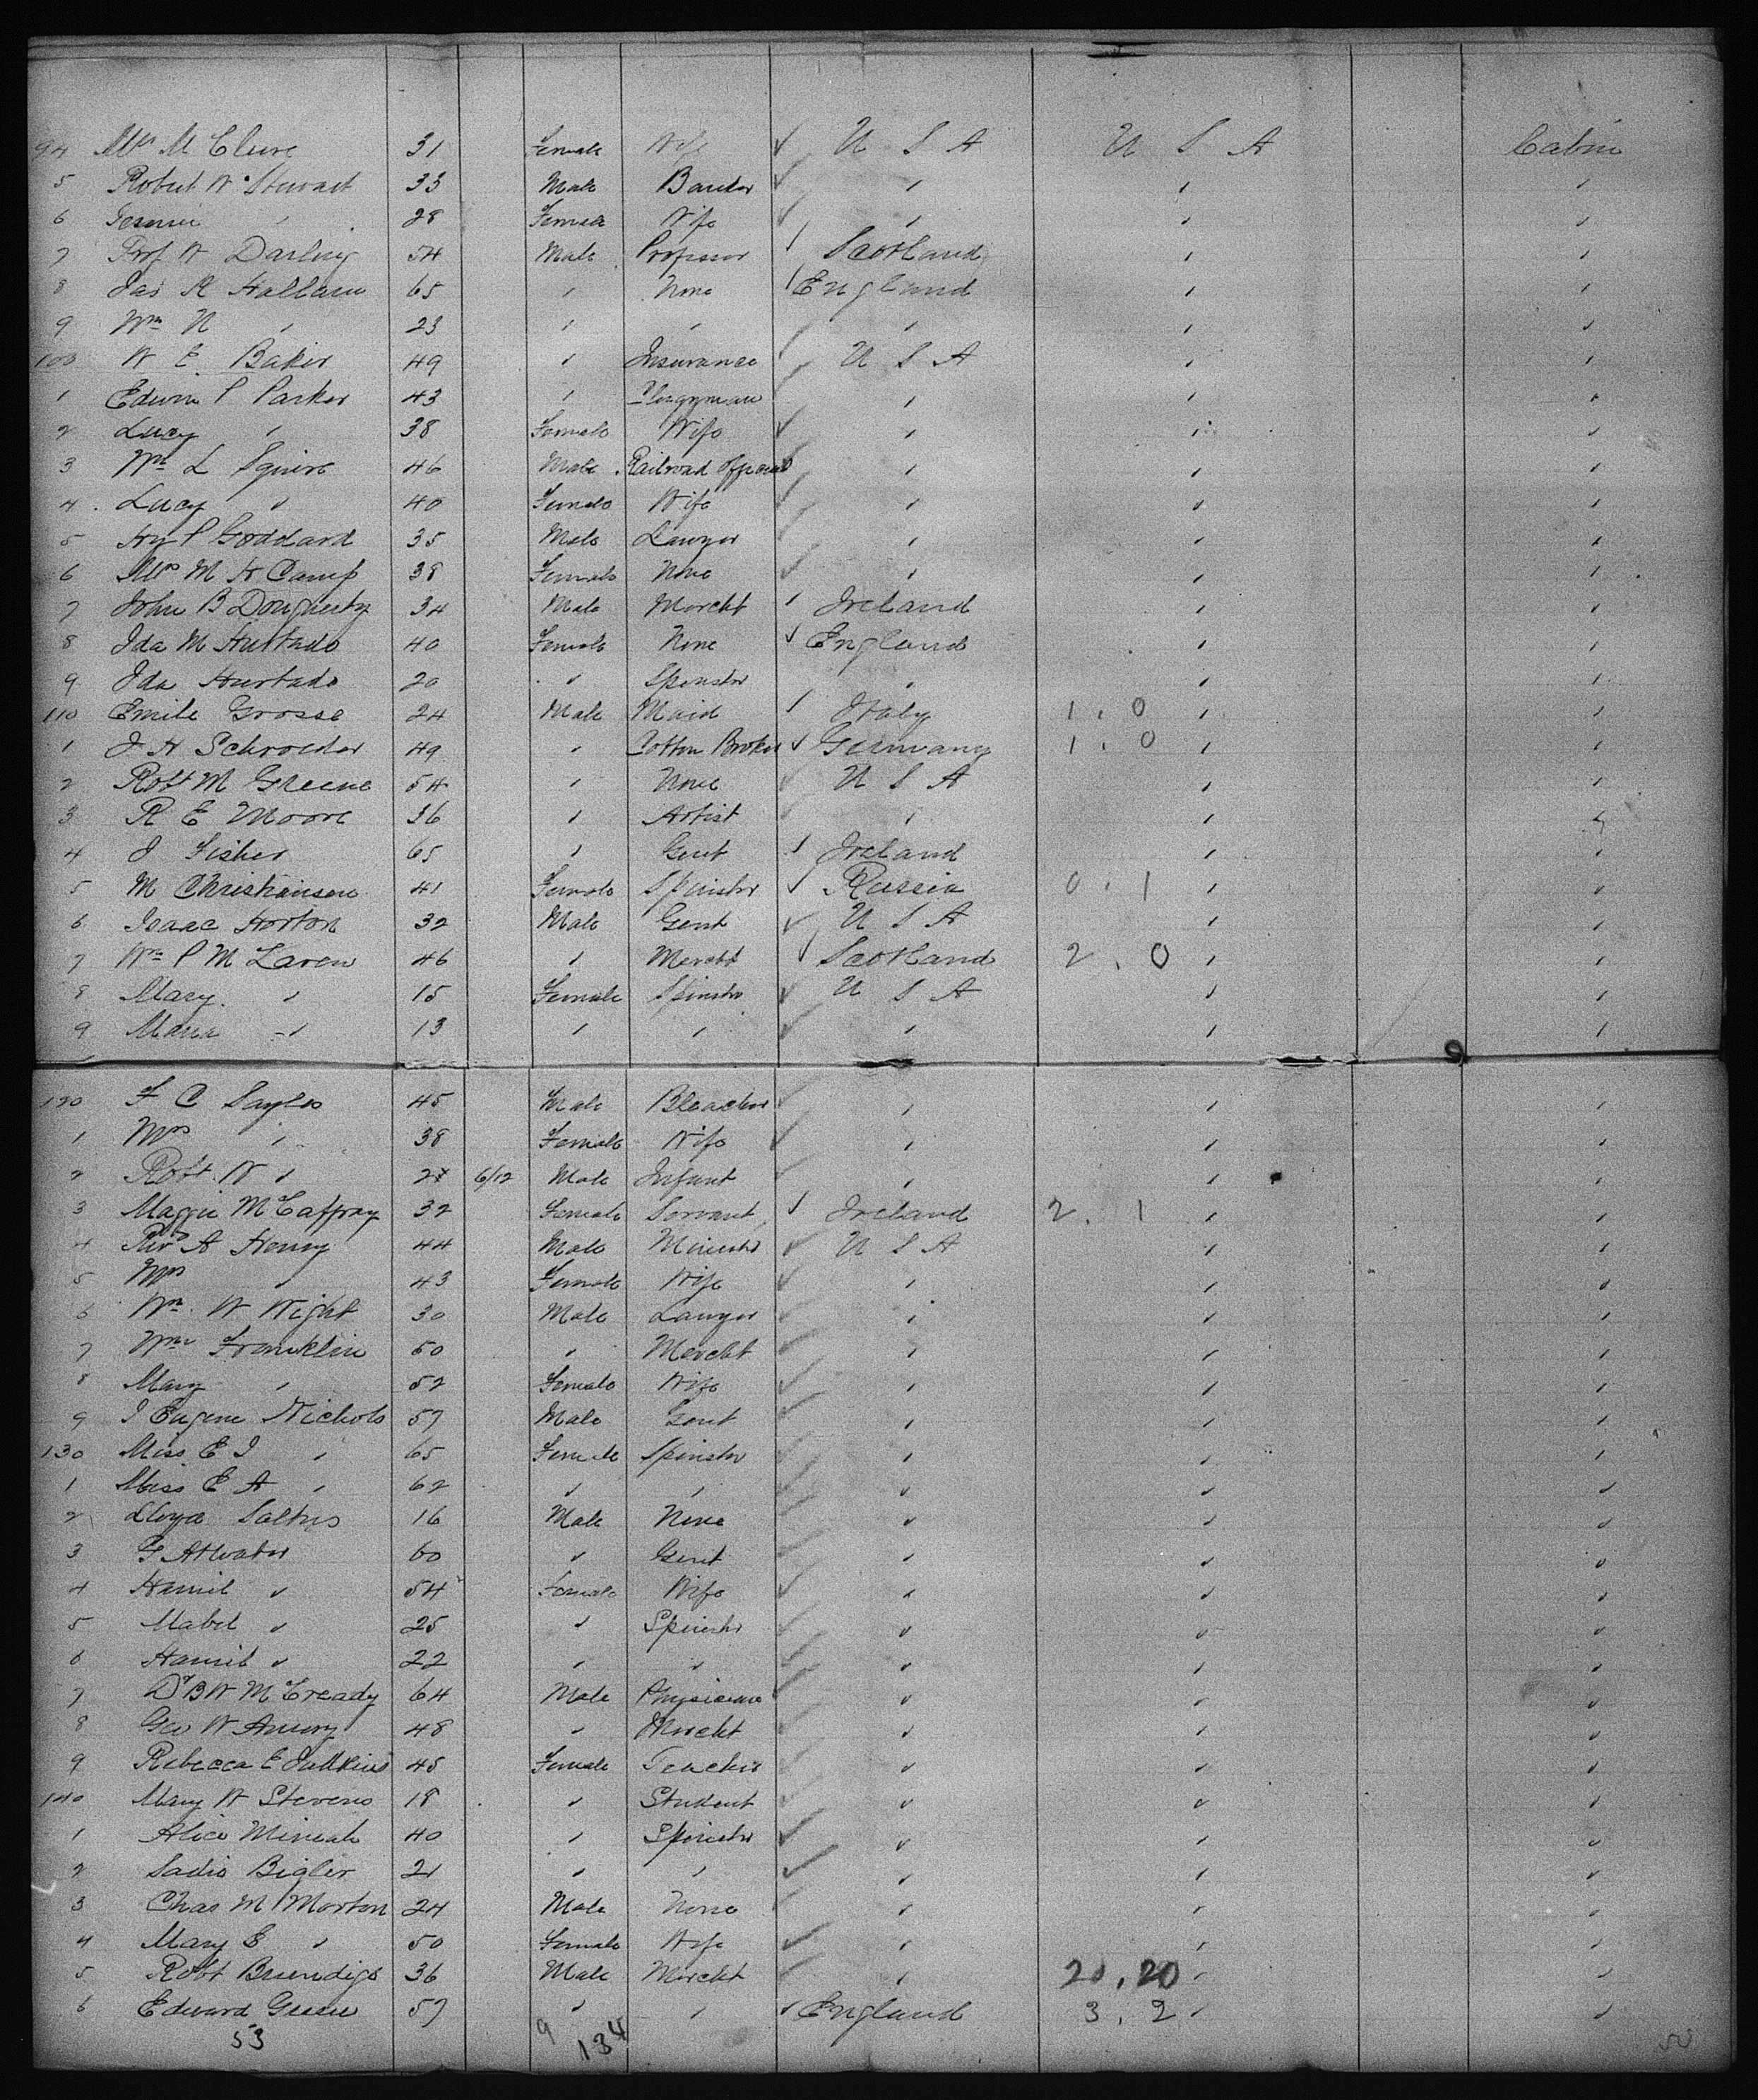 94 Mrs McClure 31 Female Wife ✓ U S A U S A Cabin
5 Robert W Stewart 33 Male Banker ✓ " " "
6 " 28 Female Wife ✓ " " "
7 Prof W Darling 54 Male Professor ✓ Scotland " "
8 Jas R Hallam 65 " None ✓ England " "
9 Wm N " 23 " " " " "
100 W E Baker 49 " Insurance ✓ U S A " "
1 Edwin P Parker 43 " Clergyman " " "
2 Lucy " 38 Female Wife ✓ " " "
3 Wm L Squire 46 Male Railroad Official " " "
4 Lucy " 40 Female Wife ✓ " " "
5 Hy P Goddard 35 Male Lawyer ✓ " " "
6 Mrs M H Camp 38 Female None ✓ " " "
7 John B Dougherty 34 Male Mercht ✓ Ireland " "
8 Ida M Hurtado 40 Female None ✓ England " "
9 Ida Hurtado 20 " Spinster " " "
110 Emile Grosse 24 Male Maid ✓ Italy 1.0 " "
1 J H Schroeder 49 " Cotton Broker ✓ Germany 1.0 " "
2 Robt M Greene 54 " None ✓ U S A " "
3 R E Moore 36 " Artist ✓ " " "
4 J Fisher 65 " Gent ✓ Ireland " "
5 M Christiansen 41 Female Spinster ✓ Russia 0.1 " "
6 Isaac Horton 32 Male Gent ✓ U S A " "
7 Wm P McLaren 46 " Mercht ✓ Scotland 2.0 " "
8 Mary " 15 Female Spinster ✓ U S A " "
9 Maria " 13 " " ✓ " " "
120 F C Sayles 45 Male Bleacher ✓ " " "
1 Mrs " 38 Female Wife ✓ " " "
2 Robt W " 6/12 Male Infant ✓ " " "
3 Maggie McCaffray 32 Female Servant ✓ Ireland 2.1 " "
4 Rev A Henry 44 Male Minister ✓ U S A " "
5 Mrs " 43 Female Wife ✓ " " "
6 Wm W Wight 30 Male Lawyer ✓ " " "
7 Wm Franklin 50 " Mercht ✓ " " "
8 Mary " 52 Female Wife ✓ " " "
9 J Eugene Nichols 57 Male Gent ✓ " " "
130 Miss E J " 65 Female Spinster ✓ " " "
1 Miss E A " 62 " " ✓ " " "
2 Lloyd Saltus 16 Male None ✓ " " "
3 G Atwater 60 " Gent ✓ " " "
4 Harriet " 54 Female Wife ✓ " " "
5 Mabel " 25 " Spinster ✓ " " "
6 Harriet " 22 " " ✓ " " "
7 Dr B W McCready 64 Male Physician ✓ " " "
8 Geo W Amory 48 " Mercht ✓ " " "
9 Rebecca E Judkins 45 Female Teacher ✓ " " "
140 Mary W Stevens 18 " Student ✓ " " "
1 Alice 40 " Spinster ✓ " " "
2 Sadie Bigler 21 " " ✓ " " "
3 Chas M Morton 24 Male None ✓ " " "
4 Mary E " 50 Female Wife ✓ " " "
5 Robt Brundige 36 Male Mercht " 20.20 " "
6 Edward Greene 57 " " ✓ England 3.2 " "
53 9 134